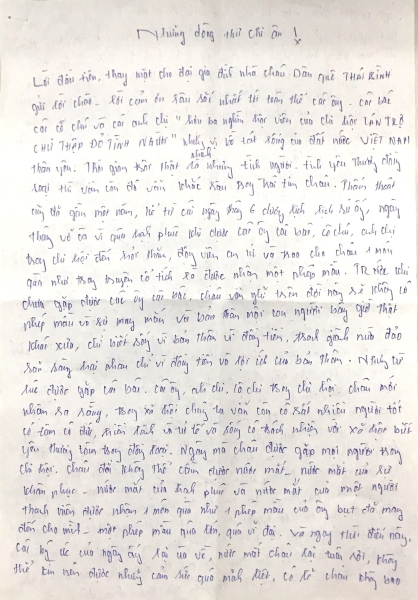 Những dòng thư chi ân !
Lời đầu tiên, thay mặt cho đại gia đình nhà cháu. Dân quê THÁI BÌNH
gửi lời chào - lời cảm ơn sâu sắc nhất tới toàn thể các ông - các bác
các cô chú và các anh chị
CHỮ THẬP ĐỎ TÌNH NGƯỜI của đất nước VIỆT NAM
thân yêu. Thời gian trôi thật tình người - tình yêu thương đồng
loại thì vẫn còn đó vẫn khắc sâu trong trái tim cháu. Thấm thoát
cũng đã gần một năm, kể từ cái ngày tháng 6 dương lịch lịch sử ấy, ngày
cháu vỡ òa vì quá hạnh phúc khi được các ông các bác, cô chú, anh chị
trong chi hội đến thăm động viên an ủi và trao cho cháu 1 món
quà như trong truyện cổ tích là được nhận một phép màu. Trước khi
chưa gặp được các ông các bác, cháu vẫn nghĩ trên đời này sẽ không có
phép màu và sự may mắn và bản thân mỗi con người bây giờ thật
khác xưa, chỉ biết sống vì bản thân vì đồng tiền,
sẵn sàng hại nhau chỉ vì đồng tiền và lợi ích của bản thân. Nhưng từ
lúc được gặp các bác - các ông, anh chị, cô chú trong chi hội - cháu mới
nhận ra rằng, trong xã hội chúng ta vẫn còn có rất nhiều người tốt
có tâm có đức, và sống có trách nhiệm với xã hội biết
yêu thương trong đồng loại. Ngày mà cháu được gặp mọi người trong
chi hội. Cháu đã không thể cầm được nước mắt - nước mắt của sự
khâm phục - nước mắt của hạnh phúc và nước mắt của một người
thanh niên được nhận 1 món quà như 1 phép màu của ông bụt đã mang
đến cho mình - một phép màu quá lớn, quá vĩ đại. Và ngay thời điểm này,
các ký ức của ngày ấy lại ùa về, nước mắt cháu lại tuôn rơi, không
thể kìm nén được những cảm xúc quá mãnh liệt, có lẽ cháu không bao